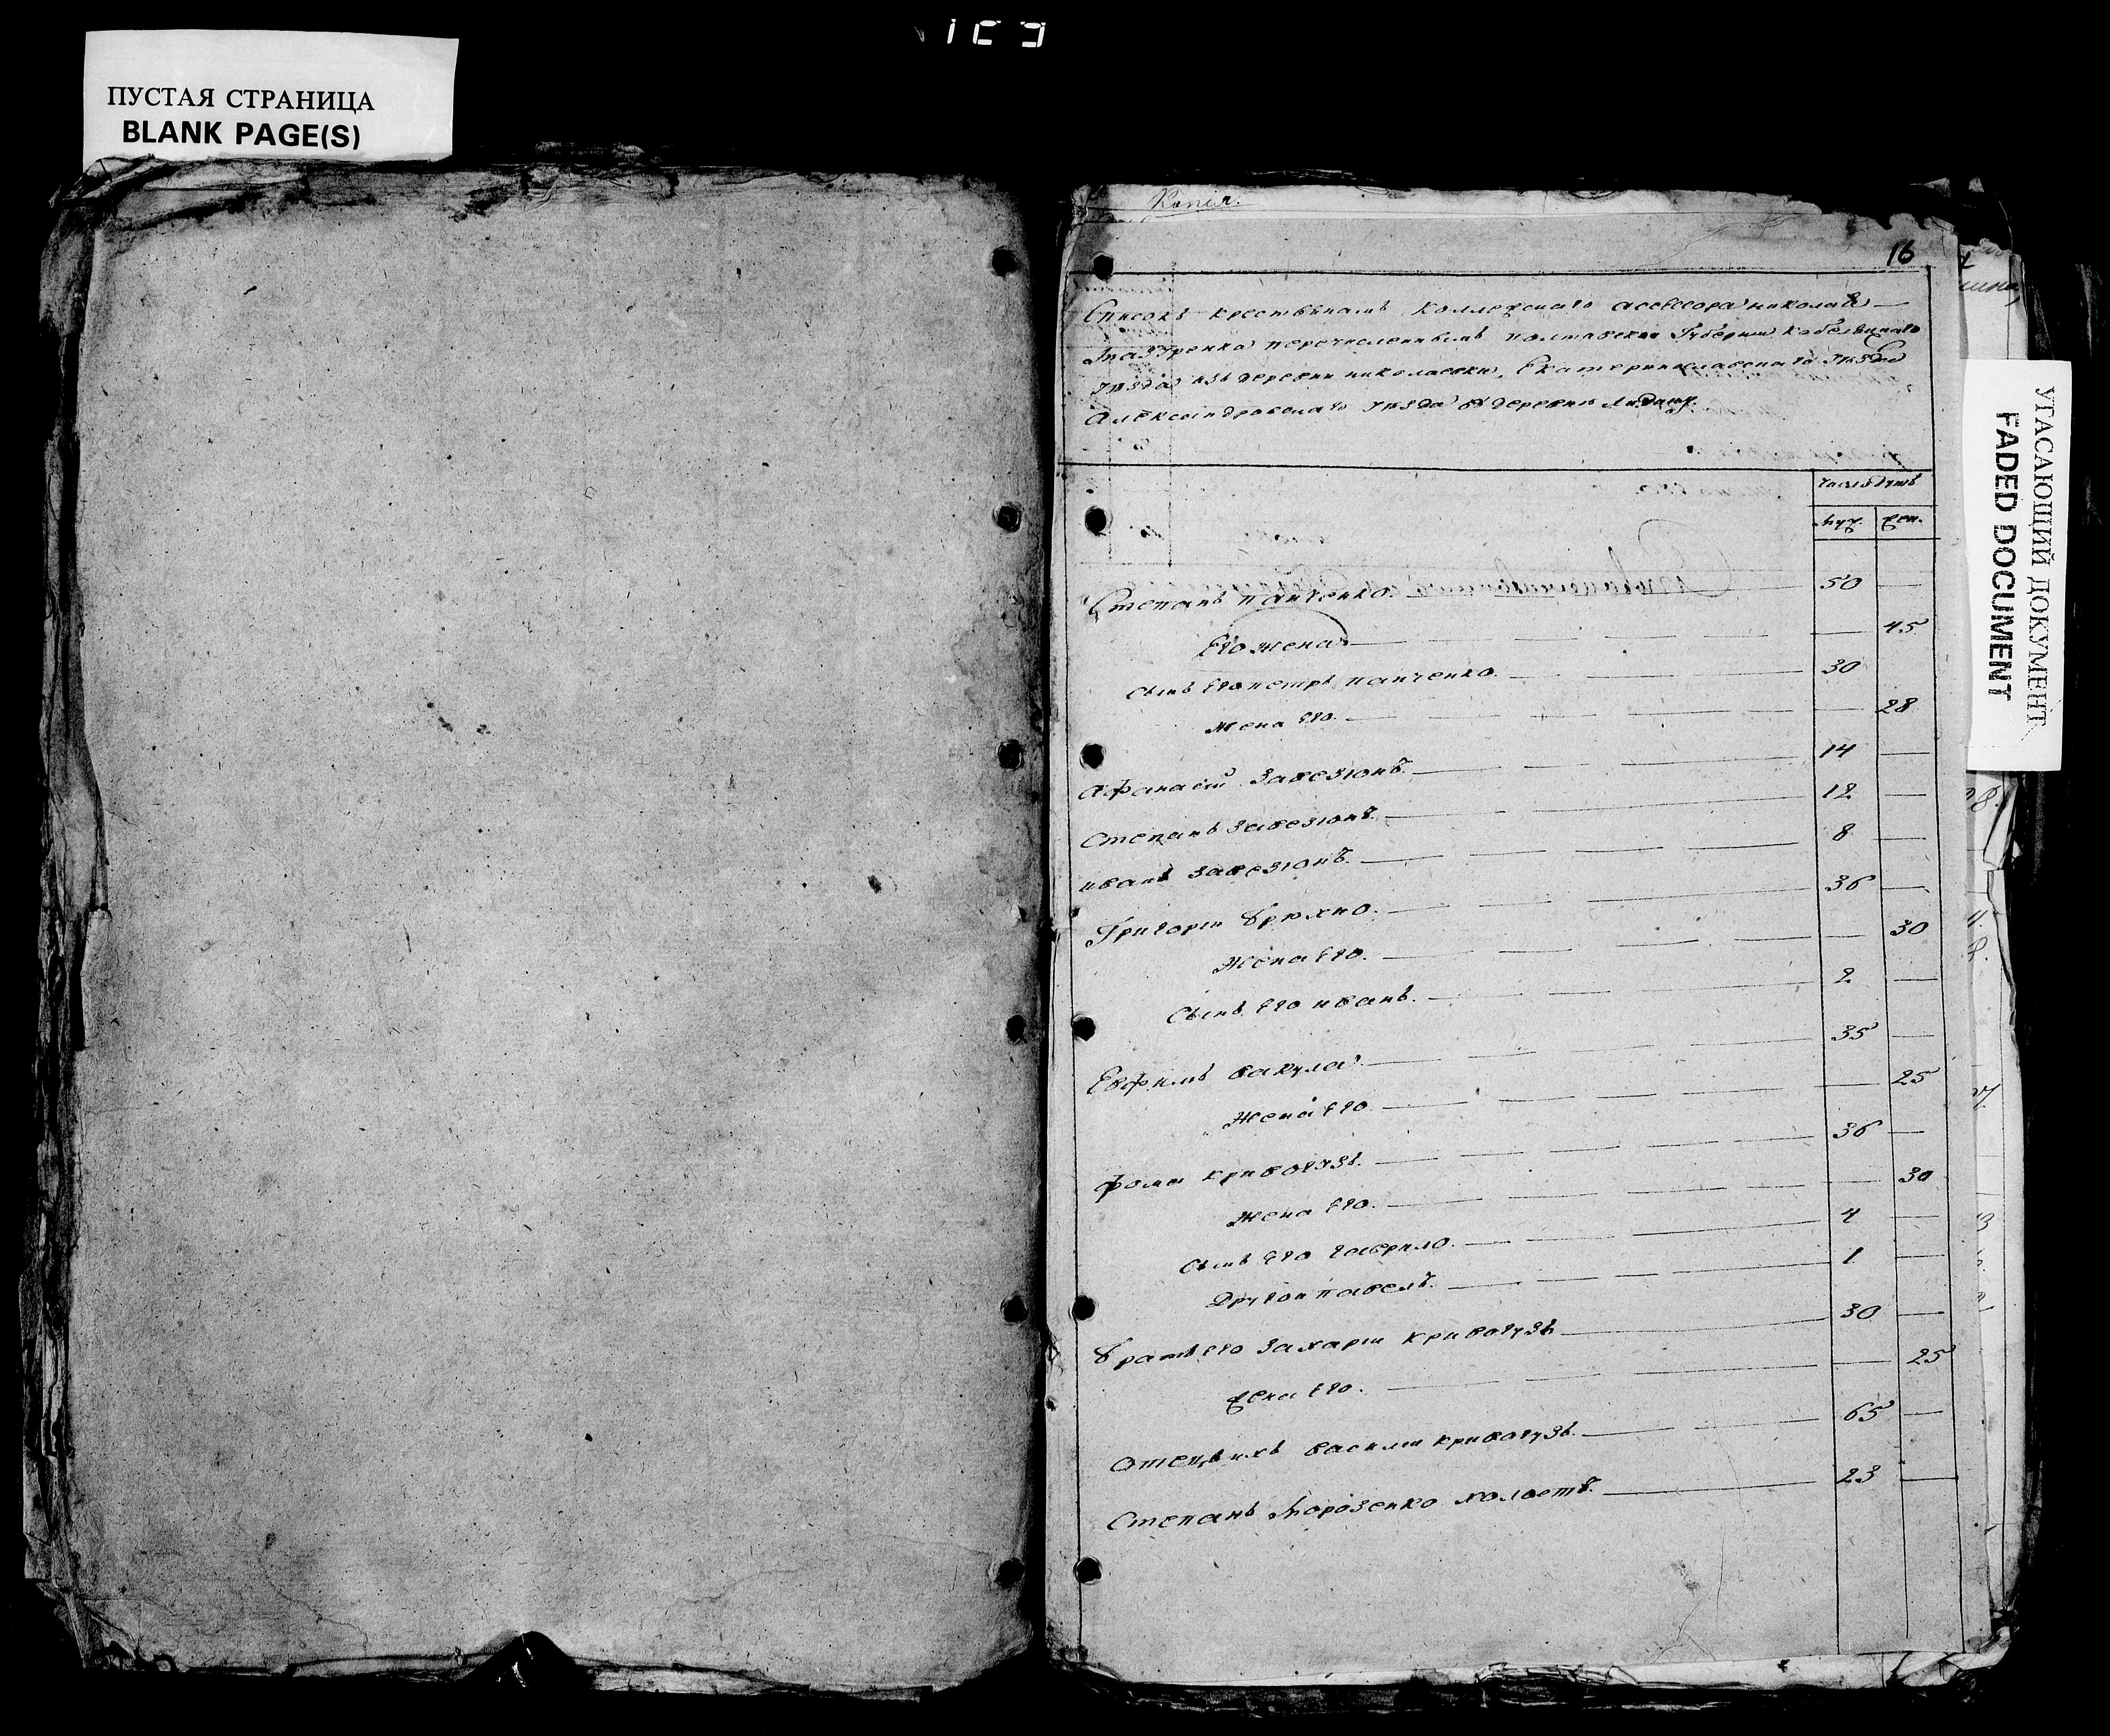 ПУСТАЯ СТРАНИЦА
BLANK PAGE(S)
Копія.
16
Списокъ крестьянамъ коллежскаго асессора николая
перечисленнымъ полтавской Губерніи кобеляцкаго
уѣзда изъ деревни николаевки, Екатеринославской
александровскаго уѣзда въ деревню
УГАСАЮЩИЙ ДОКУМЕНТ
FADED DOCUMENT
число душъ
муж. жен.
Степанъ панченко. 50
Его жена 45
сынъ Его петръ панченко. 30
жена Его. 28
афанасій Завезіонъ. 14
степанъ завезіонъ. 12
иванъ завезіонъ. 8
Григорій брюхно. 36
Жена Его. 30
Сынъ Его иванъ. 2
Евфимъ вакула 35
Жена Его 25
фома кривогузъ. 36
Жена Его. 30
сынъ Его гаврило. 4
Другой павелъ. 1
братъ Его захарій кривогузъ 30
жена Его. 25
отецъ ихъ василій кривогузъ. 65
Степанъ Морозенко холостъ. 23